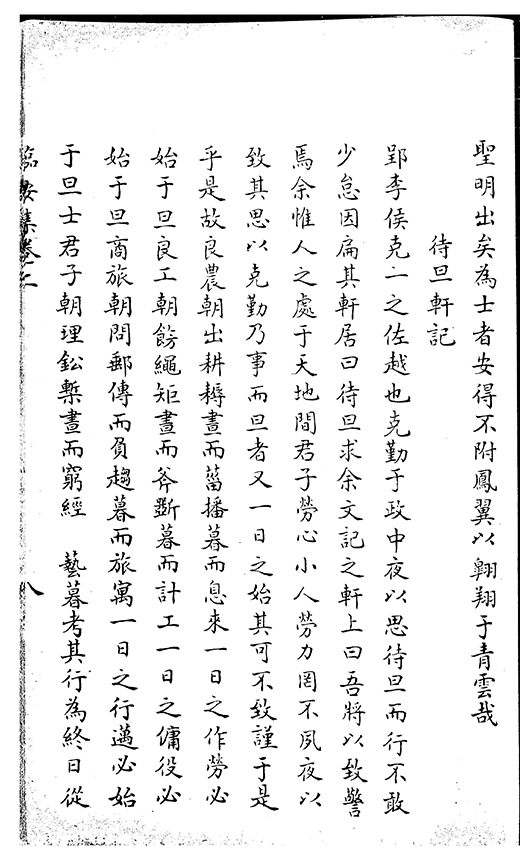 聖明出矣為士者安得不附鳳翼以翺翔于青雲哉
待旦軒記
郢李侯克一之佐越也克勤于政中夜以思待旦而行不敢
少怠因扁其軒居曰待旦求余文記之軒上曰吾將以致警
焉余惟人之處于天地間君子勞心小人勞力罔不夙夜以
致其思以克勤乃事而旦者又一日之始其可不致謹于是
乎是故良農朝出耕耨晝而菑播暮而息來一日之作勞必
始于旦良工朝飭繩矩晝而斧斲暮而計工一日之傭役必
始于旦商旅朝問郵傳而負趨暮而旅寓一日之行邁必始
于旦士君子朝理鈆槧晝而窮經　藝暮考其行為終日從
臨安集卷二　八